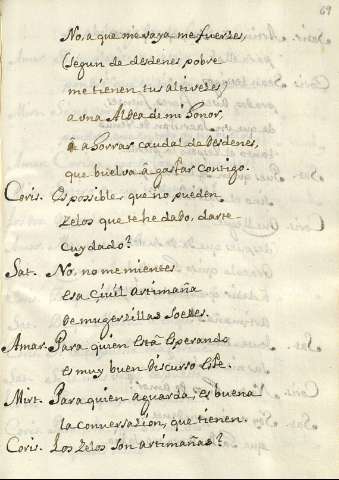 69
No, a que me vaya me fuerzes,
(segun de desdenes pobre
me tienen tus altivezes)
a una Aldea de mi honor,
a horrar caudal de desdenes,
que buelva à gastar contigo.
Coris. Es possible, que no pueden
zelos que te he dado, darte
cuydado?
Sat. No, no me mientes
esa Civil artimaña
de mugerzillas soezes.
Amar. Para quien està esperando
es muy buen discurso este.
Mirt. Para quien aguarda, es buena
la conversazion, que tienen.
Coris. Los zelos son artimañas?